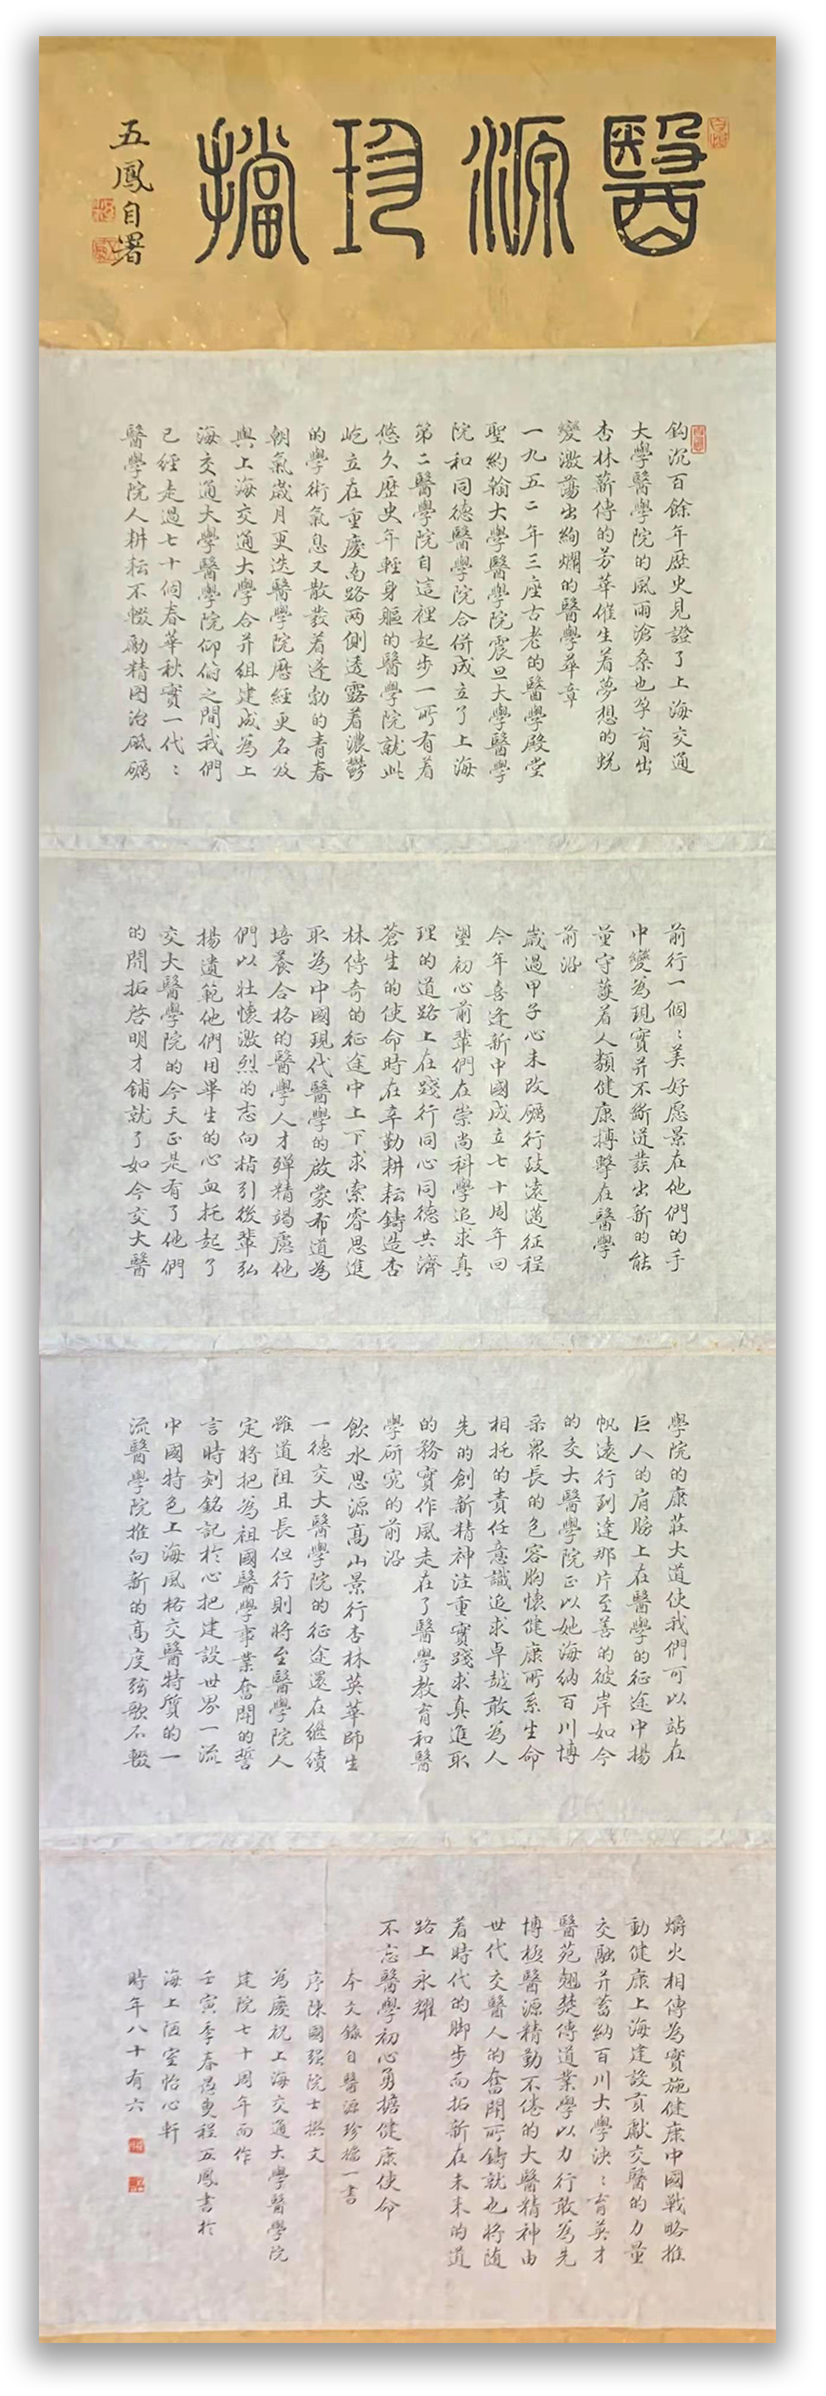 醫源珍檔
五鳳自署
鈎沉百餘年歷史見證了上海交通
大學醫學院的風雨滄桑也孕育出
杏林薪傳的芳華催生着夢想的蛻
變激蕩出絢爛的醫學華章
一九五二年三座古老的醫學殿堂
聖約翰大學醫學院震旦大學醫學
院和同德醫學院合併成立了上海
第二醫學院自這裡起步一所有着
悠久歷史年輕身軀的醫學院就此
屹立在重慶南路两側透露着濃鬱
的學術氣息又散發着蓬勃的青春
朝氣歲月更迭醫學院歷經更名及
與上海交通大學合并組建成為上
海交通大學醫學院仰俯之間我們
已經走過七十個春華秋實一代〻
醫學院人耕耘不輟勵精图治砥礪
前行一個〻美好愿景在他們的手
中變為現實并不斷迸發出新的能
量守護着人類健康搏擊在醫學
前沿
歲過甲子心未改礪行致遠邁征程
今年喜逢新中國成立七十周年回
望初心前輩們在崇尚科學追求真
理的道路上在踐行同心同德共濟
蒼生的使命時在辛勤耕耘鑄造杏
林傳奇的征途中上下求索睿思進
取為中國現代醫學的啟蒙布道為
培養合格的醫學人才殫精竭慮他
們以壯懷激烈的志向指引後輩弘
揚遺範他們用畢生的心血托起了
交大醫學院的今天正是有了他們
的開拓啓明才鋪就了如今交大醫
學院的康莊大道使我們可以站在
巨人的肩膀上在醫學的征途中揚
帆遠行到達那片至善的彼岸如今
的交大醫學院正以她海納百川博
采衆長的包容胸懷健康所系生命
相托的責任意識追求卓越敢為人
先的創新精神注重實踐求真進取
的務實作風走在了醫學教育和醫
學研究的前沿
飲水思源高山景行杏林英華師生
一德交大醫學院的征途還在繼續
雖道阻且長但行則將至醫學院人
定將把為祖國醫學事業奮鬥的誓
言時刻銘記於心把建設世界一流
中國特色上海風格交醫特質的一
流醫學院推向新的高度弦歌不輟
爝火相傳為實施健康中國戰略推
動健康上海建設貢獻交醫的力量
交融并蓄納百川大學泱〻育英才
醫苑翹楚傳道業學以力行敢為先
博極醫源精勤不倦的大醫精神由
世代交醫人的奮鬥所鑄就也將随
着時代的脚步而拓新在未来的道
路上永耀
不忘醫學初心勇擔健康使命
本文錄自醫源珍檔一書
序陳國强院士撰文
為慶祝上海交通大學醫學院
建院七十周年而作
壬寅季春邑叟程五鳳書於
海上陋室怡心軒
時年八十有六